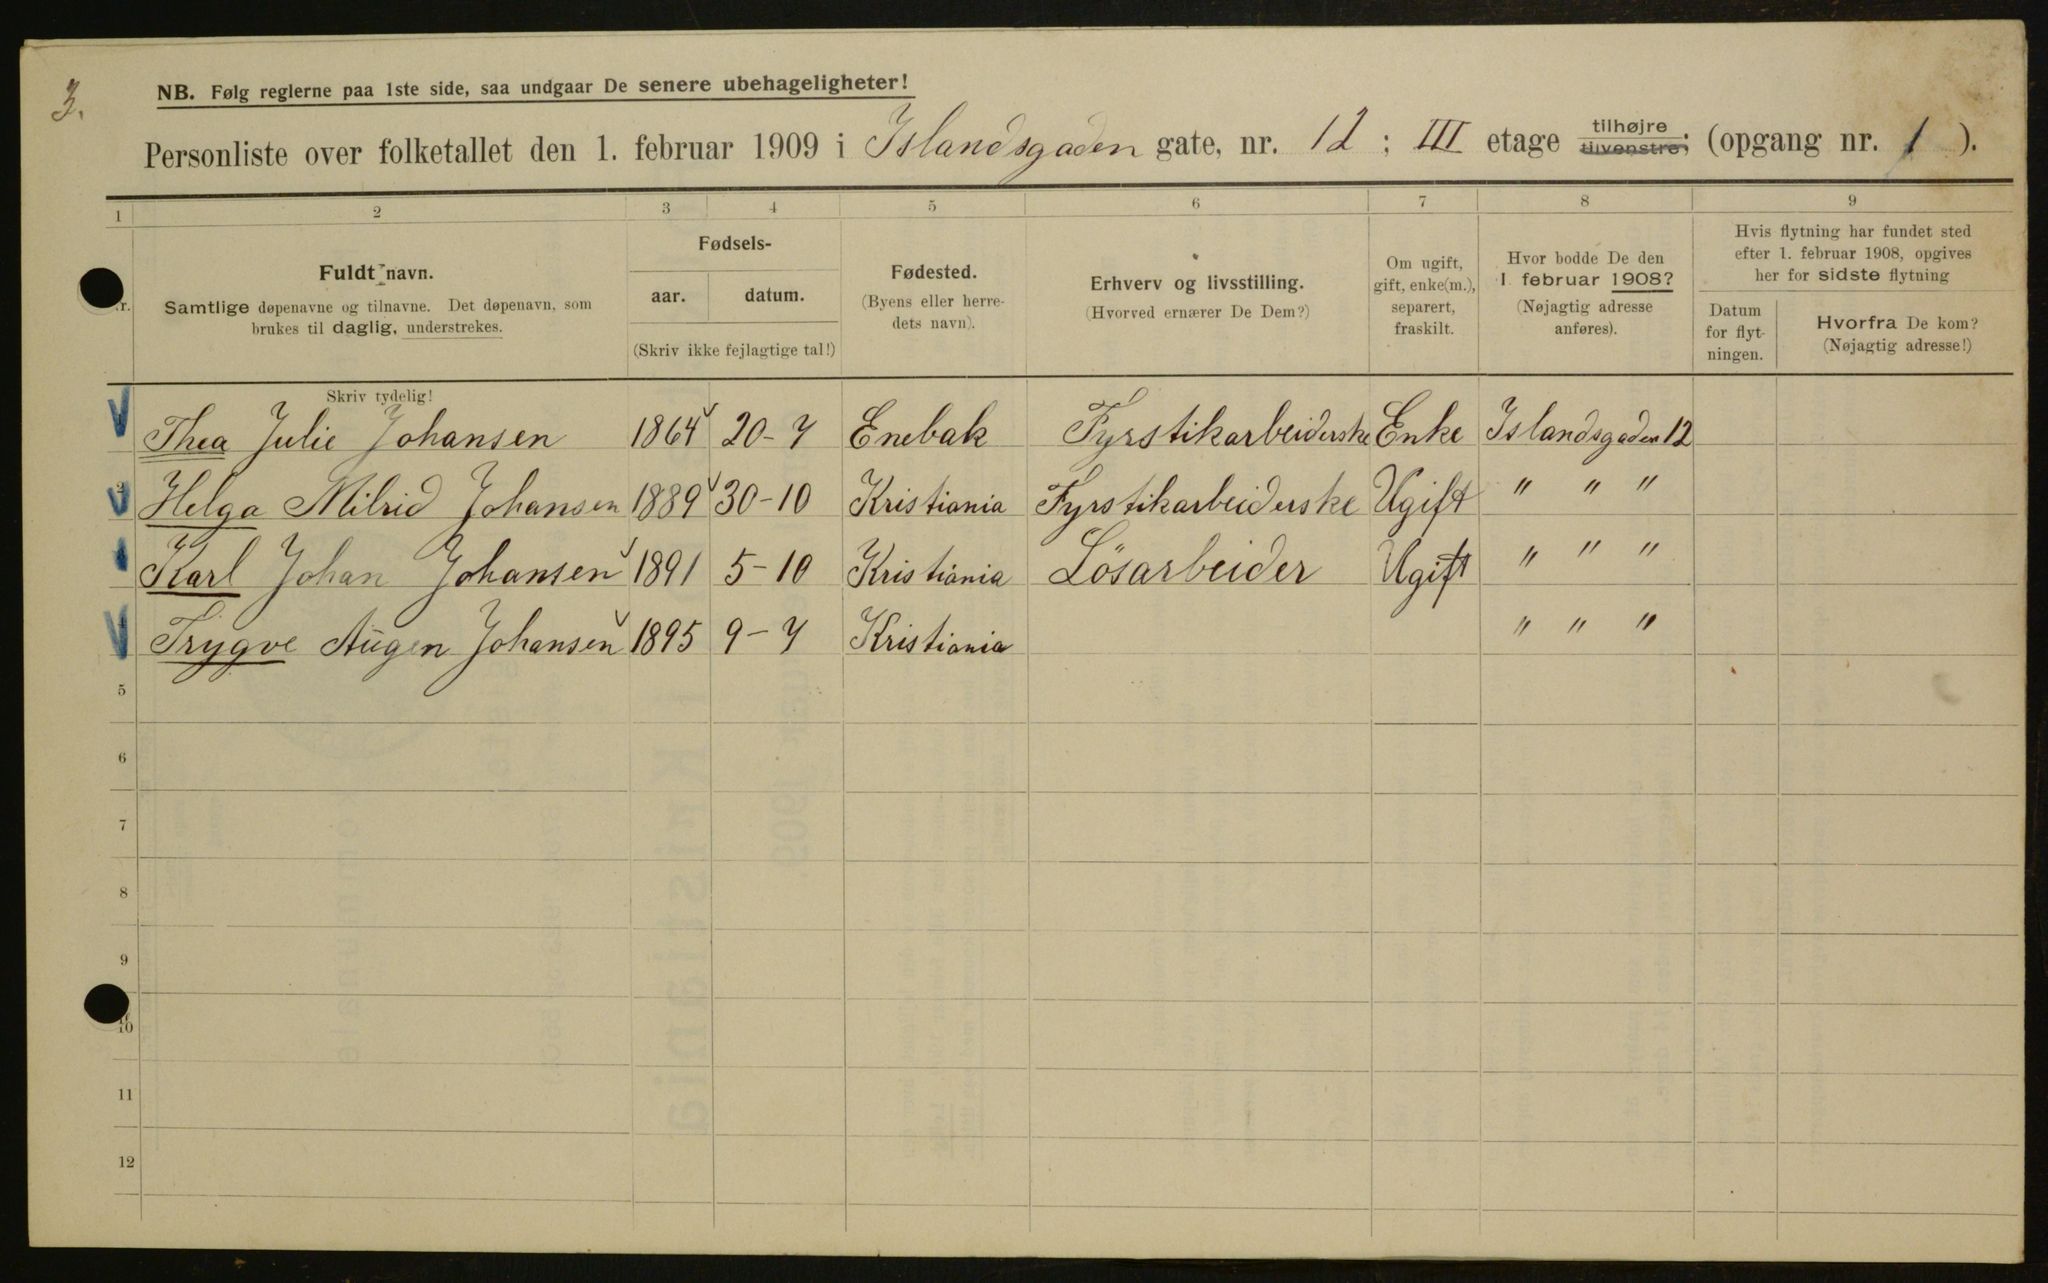 3.
NB. Følg reglerne paa 1ste side, saa undgaar De senere ubehageligheter!
Personliste over folketallet den 1. februar 1909 i Islandsgaden gate, nr. 12 ; III etage tilhøjre tilvenstre; (opgang nr. 1 ).
1 2 3 4 5 6 7 8 9
Fuldt navn.
Samtlige døpenavne og tilnavne. Det døpenavn, som
brukes til daglig, understrekes.
Fødsels-
aar. datum.
(Skriv ikke fejlagtige tal!)
Fødested.
(Byens eller herre-
dets navn).
Erhverv og livsstilling.
(Hvorved ernærer De Dem?)
Om ugift,
gift, enke(m.),
separert,
fraskilt.
Hvor bodde De den
1 februar 1908?
(Nøjagtig adresse
anføres).
Hvis flytning har fundet sted
efter 1. februar 1908, opgives
her for sidste flytning
Datum
for flyt-
ningen.
Hvorfra De kom?
(Nøjagtig adresse!)
Skriv tydelig!
Thea Julie Johansen 1864 20-7 Enebak Fyrstikarbeiderske Enke Islandsgaden 12
2 Helga Milrid Johansen 1889 30-10 Kristiania Fyrstikarbeiderske Ugift " " "
Karl Johan Johansen 1891 5-10 Kristiania Lösarbeider Ugift " " "
4 Trygve Augen Johansen 1895 9-7 Kristiania " " "
5
6
7
8
9
10
11
12